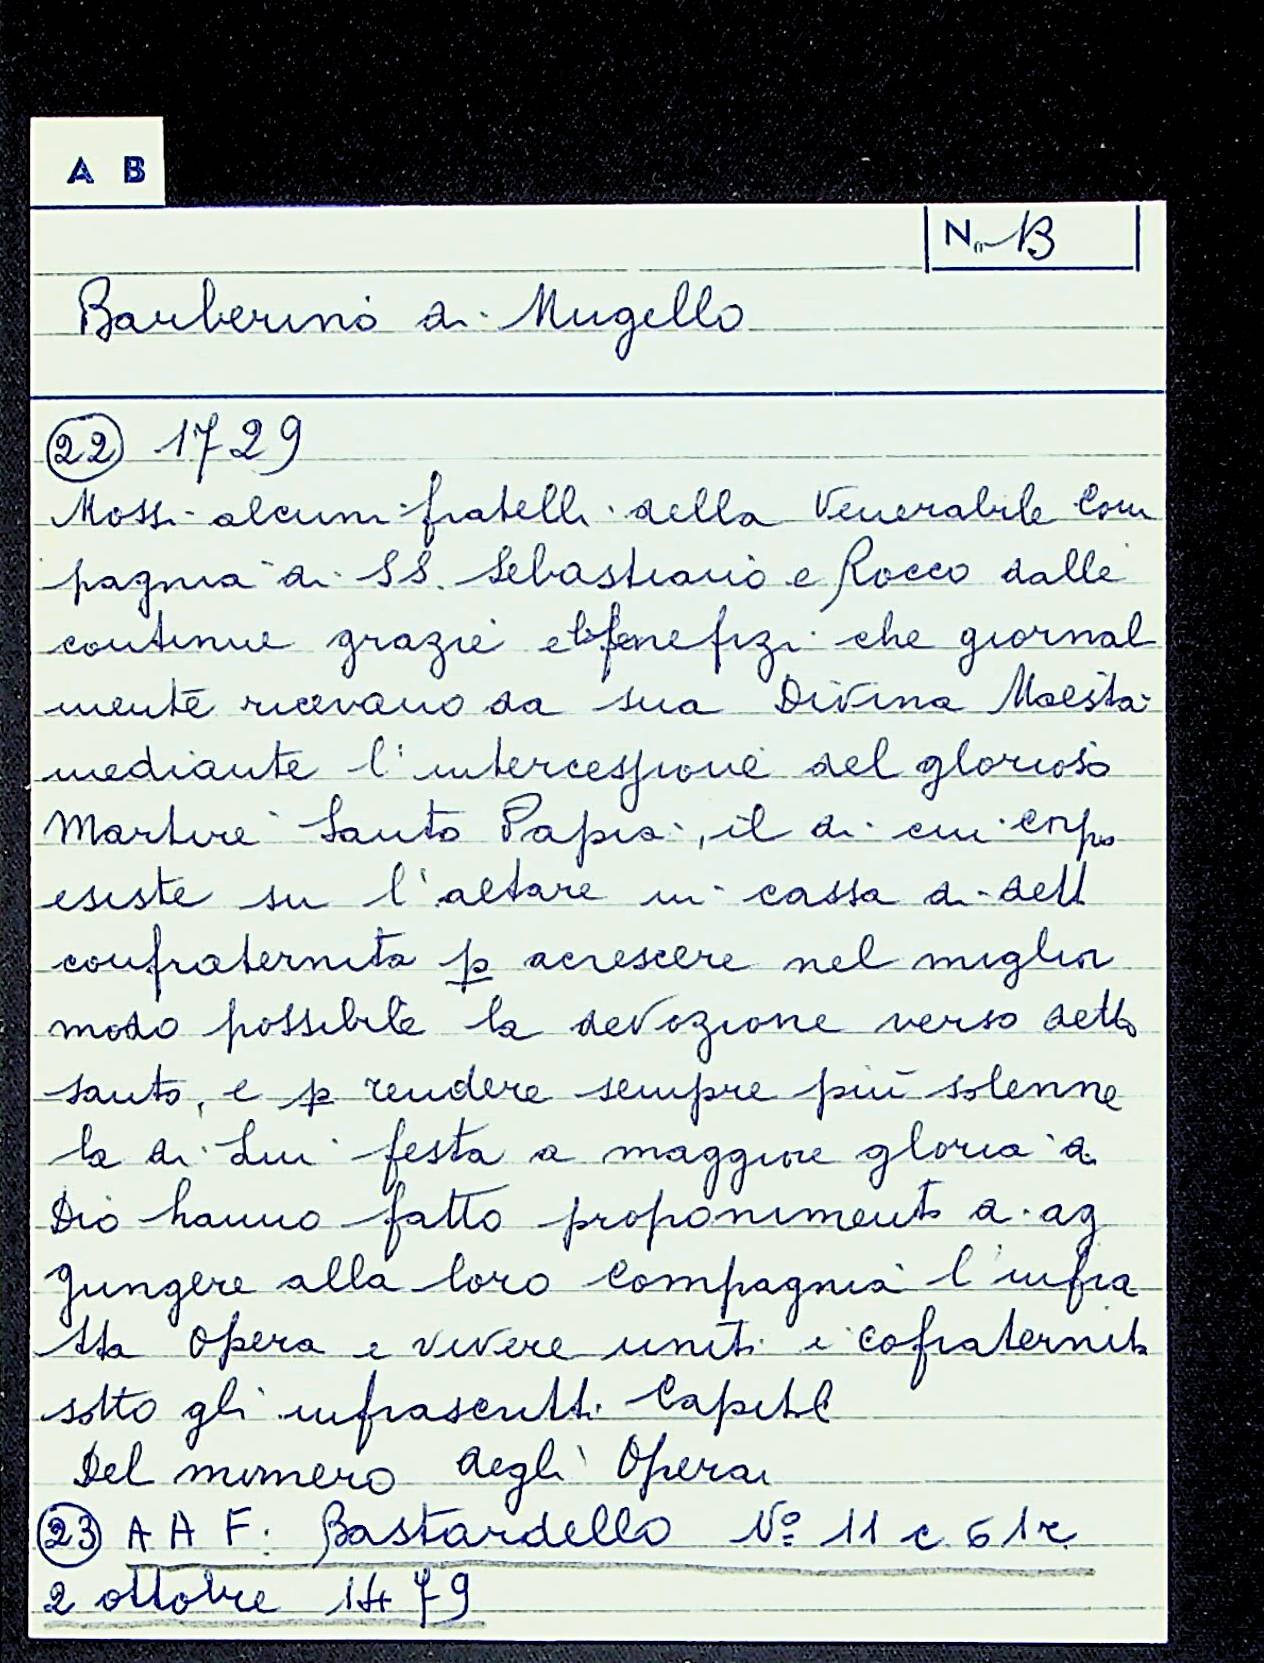 A B
N. 13
Barberino di Mugello
22 1729
Mossi alcuni fratelli della Venerabile Com
pagnia di SS. Sebastiano e Rocco dalle
continue grazie e benefizi che giornal
mente ricevano da sua Divina Maestà
mediante l'intercessione del glorioso
Martire Santo Papia, il di cui corpo
esiste su l'altare in cassa di dett
confraternita p acrescere nel miglior
modo possibile la devozione verso detto
santo, e p rendere sempre più solenne
la di Lui festa a maggiore gloria di
Dio hanno fatto proponimento di ag
giungere alla loro Compagnia l'infra
tta Opera e vivere uniti e cofraterniti
sotto gli infrascritti Capitoli
Del numero degli Operai
23 A A F. Bastardello Nº 11 c 61r
2 ottobre 1479